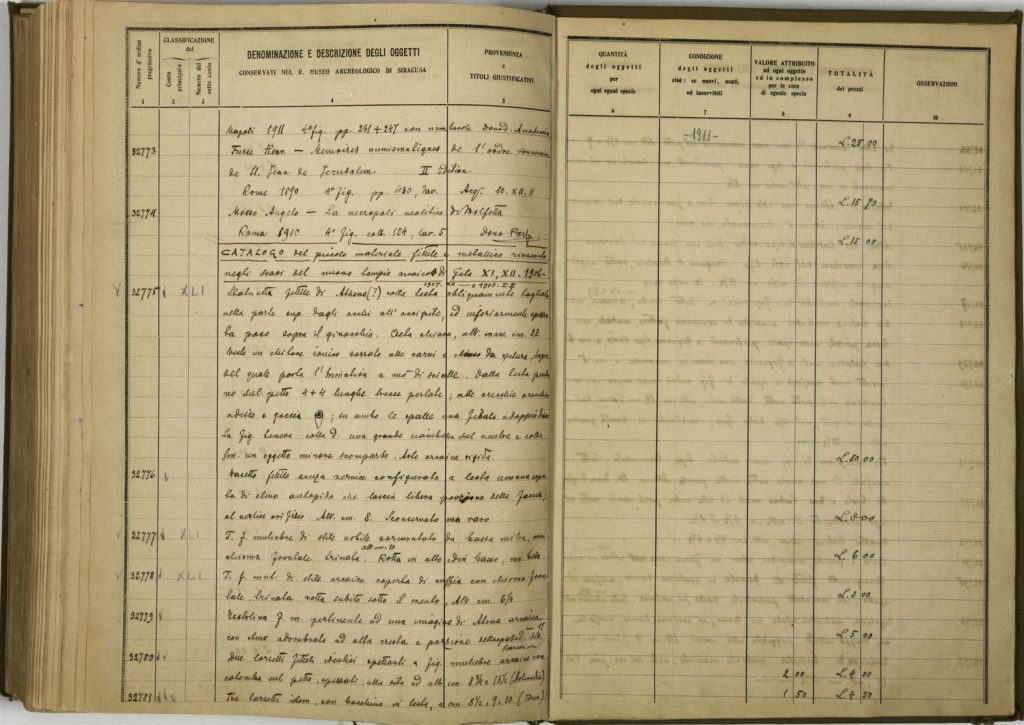 Numero d'ordine progressivo
CLASSIFICAZIONE
del
Conto principale
Numero del sotto conto
DENOMINAZIONE E DESCRIZIONE DEGLI OGGETTI
CONSERVATI NEL R. MUSEO ARCHEOLOGICO DI SIRACUSA
PROVENIENZA
e
TITOLI GIUSTIFICATIVI
1 2 3 4 5
Napoli 1911 4° fig. pp. 241 + 247 con num tavole Dono d. Accademia
32773 Furse Henr. — Memoires numismatiques de l'ordre souverain
de St. Jean de Jerusalem II Edition
Rome 1890 4° fig. pp. 430, tav. Acq. 10.XII.11
32774 Mosso Angelo — La necropoli neolitica di Molfetta
Roma 1910 4° fig. col. 124, tav. 5 Dono
CATALOGO del piccolo materiale fittile e metallico rinvenuto
negli scavi del nuovo tempio arcaico di Gela XI, XII. 1906-
32775 XLI Statuetta fittile di Athena (?) colla testa obliquamente tagliata
nella parte sup. dagli occhi all'occipite, ed inferiormente
poco sopra il ginocchio. Creta chiara, alt. mass. cm. 22
Veste un chitone ionico serrato alle carni e
del quale porta l'himation a mo' di scialle. Dalla testa
no sul petto 4+4 lunghe trecce perlate; alle orecchie orecchini
a disco e goccia; su ambo le spalle una fibula a doppio disco
La fig. teneva colla d. una grande ciambella sul ventre e colla
sin. un oggetto minore scomparso. Arte arcaica rigida.
32776 Vasetto fittile senza vernice configurato a testa umana
di elmo che lascia libera porzione della faccia;
al vertice orifizio. Alt. cm. 8. Sconservato ma raro
32777 XLI T. f. muliebre di stile nobile sormontata da bassa mitra, con
chioma frontale trinata. alt. cm. 10 Rotta in alto
32778 XLI T. f. mul. di stile arcaico coperta di cuffia con chioma fron
tale trinata rotta subito sotto il mento, Alt. cm. 6½
32779 Testolina f. m. pertinente ad una imagine di Atena arcaica
con elmo adombrato ad alta cresta e porzione
32780 Due torsetti fittili identici spettanti a fig. muliebre arcaica con
colomba sul petto, spezzati alla vita ed alti cm. 8¾ e 13½
32781 Tre torsetti idem, con in testa, a cm. 5½, 9, 10
QUANTITÀ
degli oggetti
per
ogni egual specie
CONDIZIONE
degli oggetti
cioè: se nuovi, usati,
od inservibili
VALORE ATTRIBUITO
ad ogni oggetto
ed in complesso
per le cose
di eguale specie
TOTALITÀ
dei prezzi
OSSERVAZIONI
6 7 8 9 10
-1911-
L. 25.00
L. 15 70
L. 15 00
L. 50 00
L. 8 00
L. 6 00
L. 3 00
L. 5 00
2 00 L. 4 00
1 50 L. 4 50